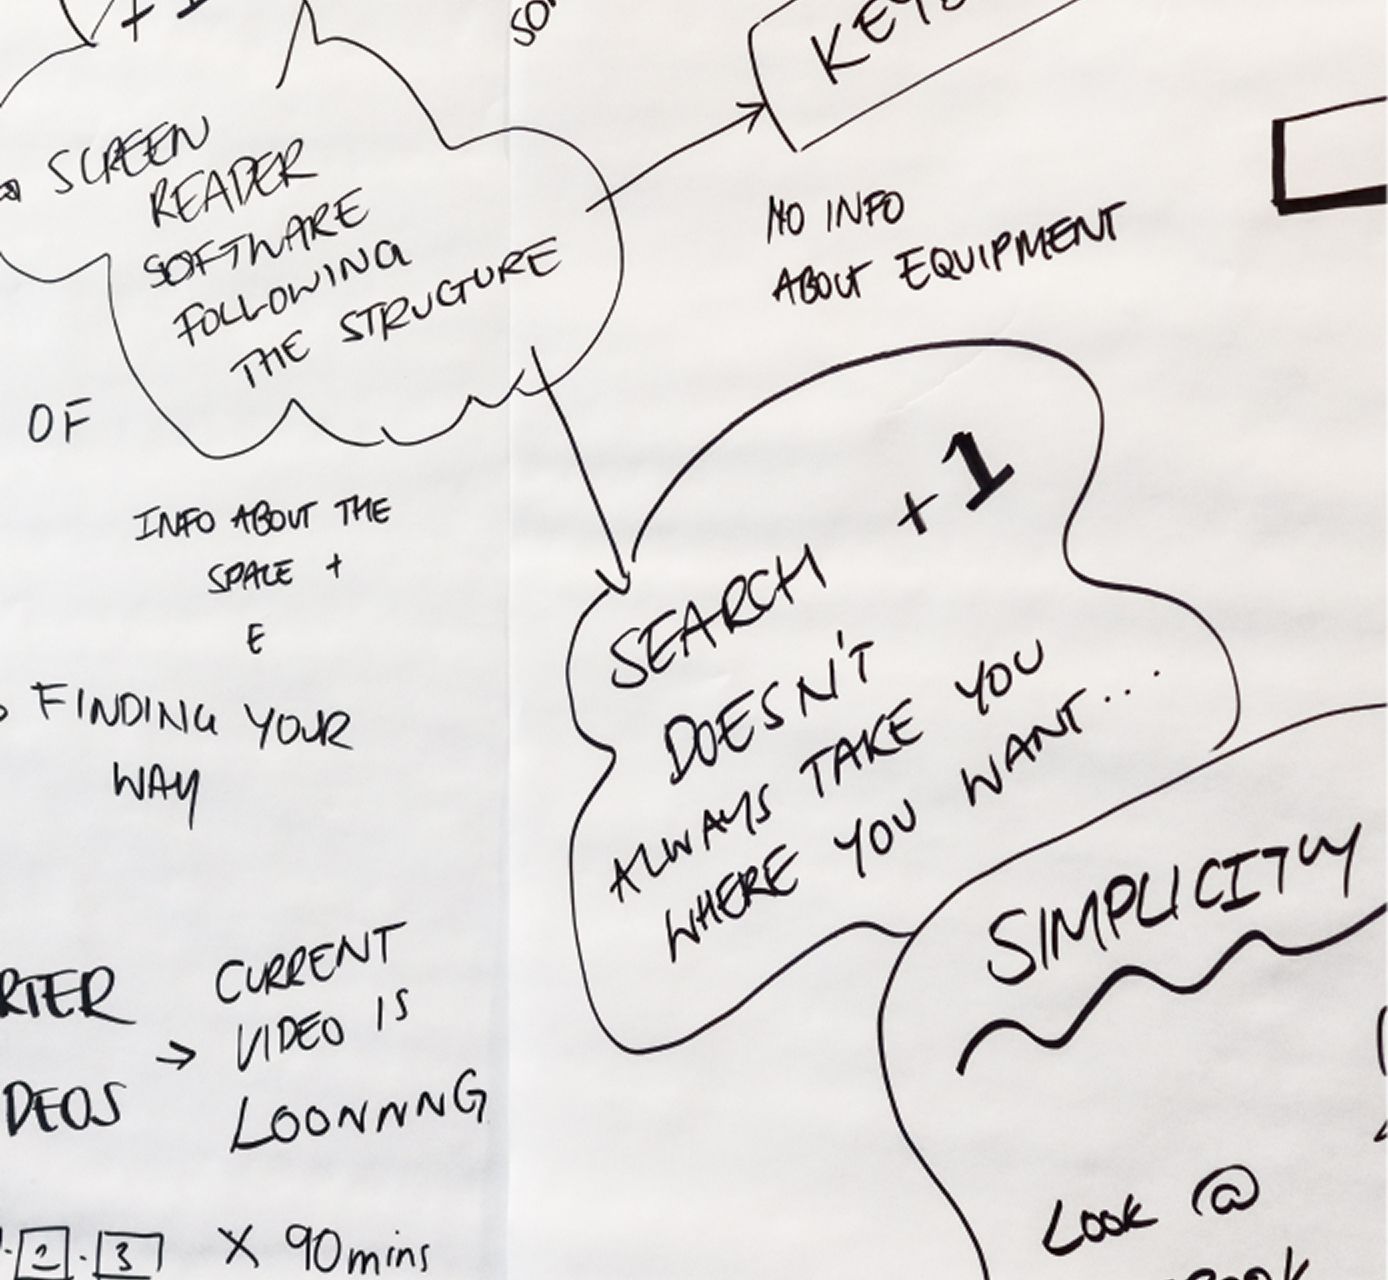 + 1
SCREEN
READER
SOFTWARE
FOLLOWING
THE STRUCTURE
NO INFO
ABOUT EQUIPMENT
OF
INFO ABOUT THE
SPACE +
E
FINDING YOUR
WAY
+1
SEARCH
DOESN'T
ALWAYS TAKE YOU
WHERE YOU WANT...
SIMPLICITY
CURRENT
VIDEO IS
LOONNNG
2 . 3 X 90mins
LOOK @